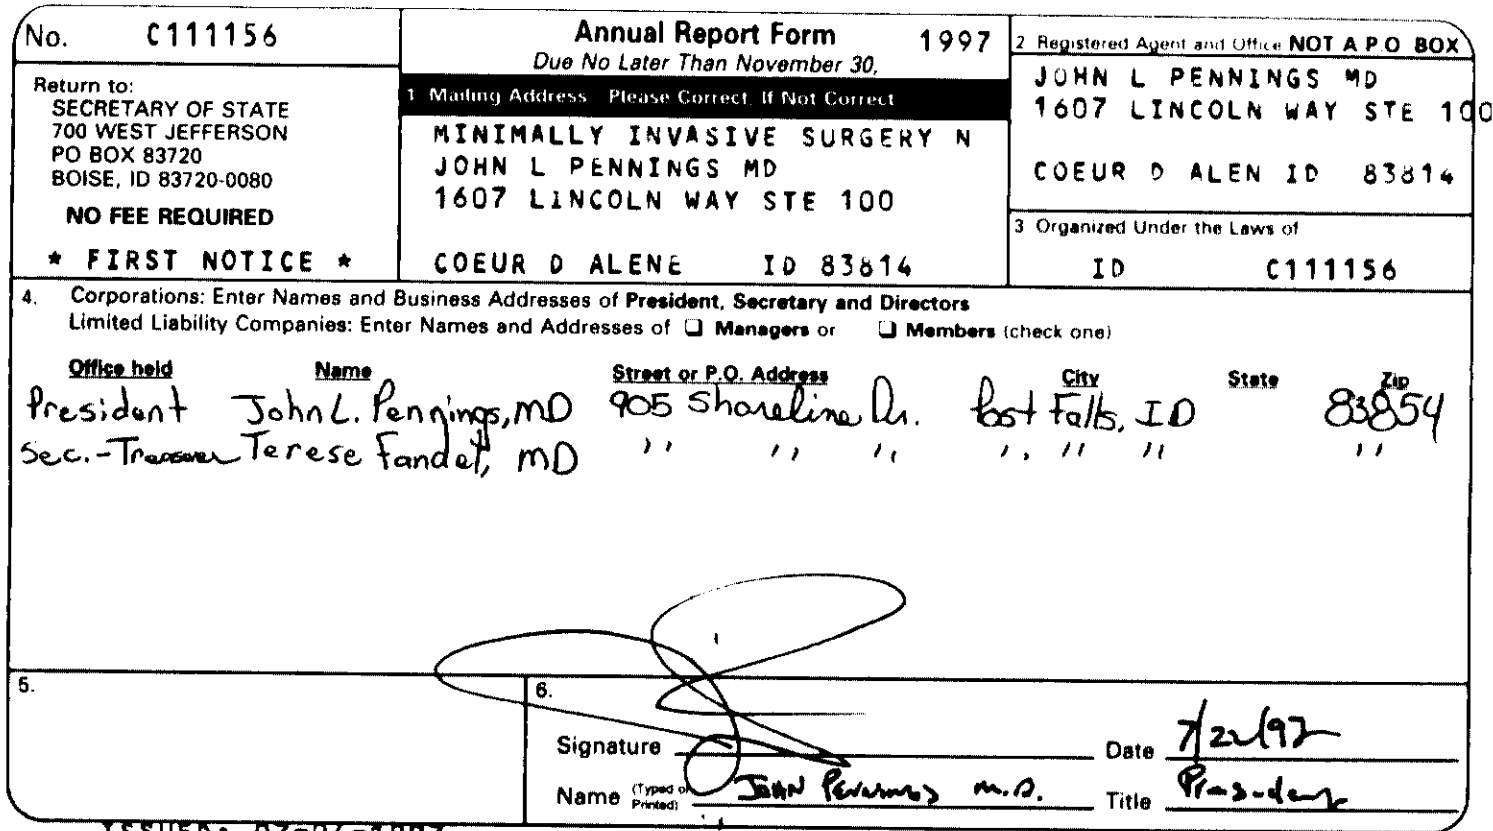 No. C111156
Annual Report Form 1997
Due No Later Than November 30,
Return to:
SECRETARY OF STATE
700 WEST JEFFERSON
PO BOX 83720
BOISE, ID 83720-0080
NO FEE REQUIRED
* FIRST NOTICE *
1 Mailing Address Please Correct, If Not Correct
MINIMALLY INVASIVE SURGERY N
JOHN L PENNINGS MD
1607 LINCOLN WAY STE 100
COEUR D ALENE ID 83814
2 Registered Agent and Office NOT A P.O BOX
JOHN L PENNINGS MD
1607 LINCOLN WAY STE 100
COEUR D ALEN ID 83814
3 Organized Under the Laws of
ID C111156
4. Corporations: Enter Names and Business Addresses of President, Secretary and Directors
Limited Liability Companies: Enter Names and Addresses of ❑ Managers or ❑ Members (check one)
Office held Name Street or P.O. Address City State Zip
President John L. Pennings, MD 905 Shoreline Dr. Post Falls, ID 83854
Sec.-Treasurer Terese Fandel, MD " " " " " " "
5.
6.
Signature Date 7/22/97
Name (Typed or Printed) JOHN PENNINGS M.D. Title President
ISSUED: 07-01-1997